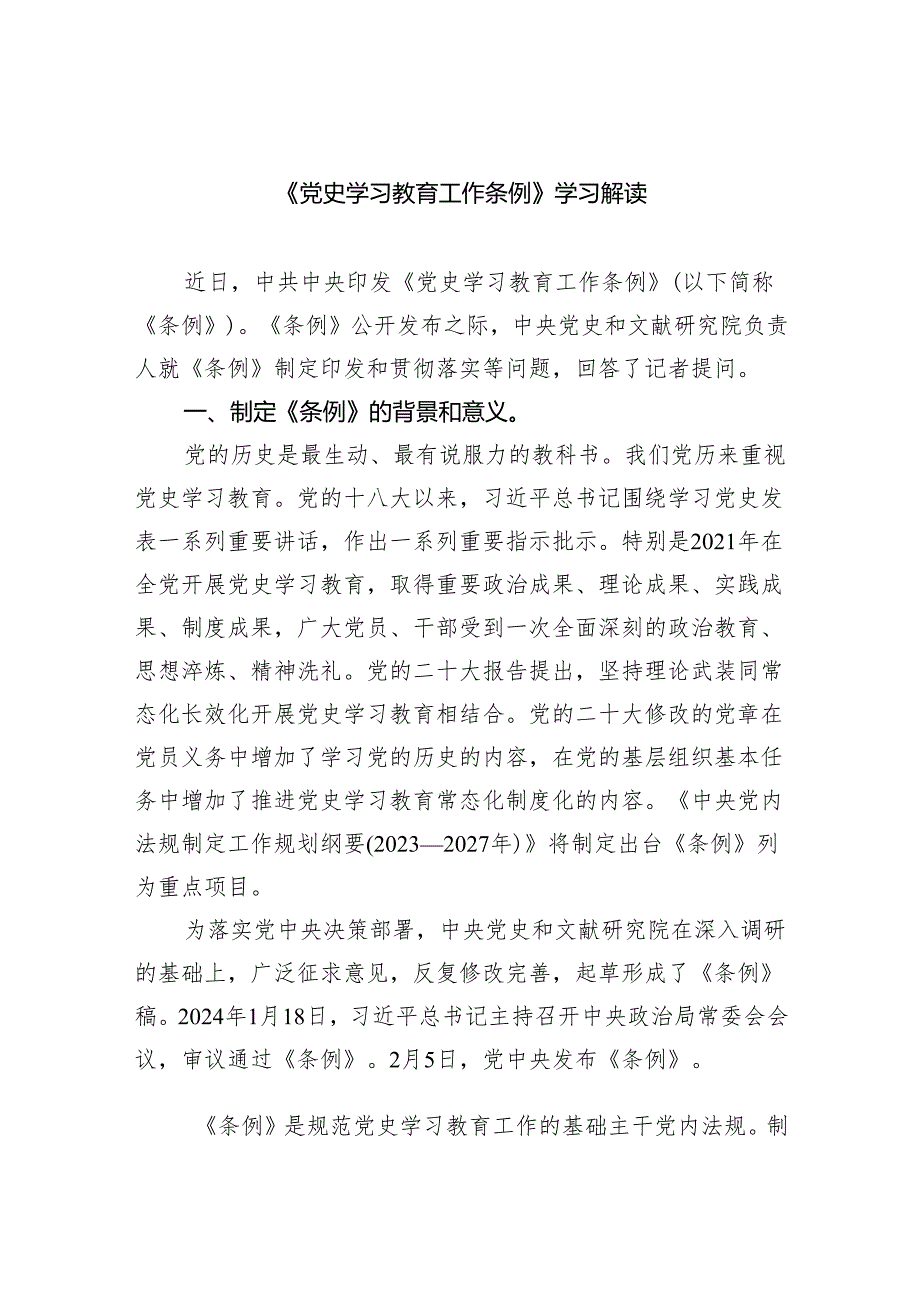 《党史学习教育工作条例》学习解读
近日，中共中央印发《党史学习教育工作条例》(以下简称
《条例》)。《条例》公开发布之际，中央党史和文献研究院负责
人就《条例》制定印发和贯彻落实等问题，回答了记者提问。
一、制定《条例》的背景和意义。
党的历史是最生动、最有说服力的教科书。我们党历来重视
党史学习教育。党的十八大以来，习近平总书记围绕学习党史发
表一系列重要讲话，作出一系列重要指示批示。特别是2021年在
全党开展党史学习教育，取得重要政治成果、理论成果、实践成
果、制度成果，广大党员、干部受到一次全面深刻的政治教育、
思想淬炼、精神洗礼。党的二十大报告提出，坚持理论武装同常
态化长效化开展党史学习教育相结合。党的二十大修改的党章在
党员义务中增加了学习党的历史的内容，在党的基层组织基本任
务中增加了推进党史学习教育常态化制度化的内容。《中央党内
法规制定工作规划纲要(2023—2027年)》将制定出台《条例》列
为重点项目。
为落实党中央决策部署，中央党史和文献研究院在深入调研
的基础上，广泛征求意见，反复修改完善，起草形成了《条例》
稿。2024年1月18日，习近平总书记主持召开中央政治局常委会会
议，审议通过《条例》。2月5日，党中央发布《条例》。
《条例》是规范党史学习教育工作的基础主干党内法规。制